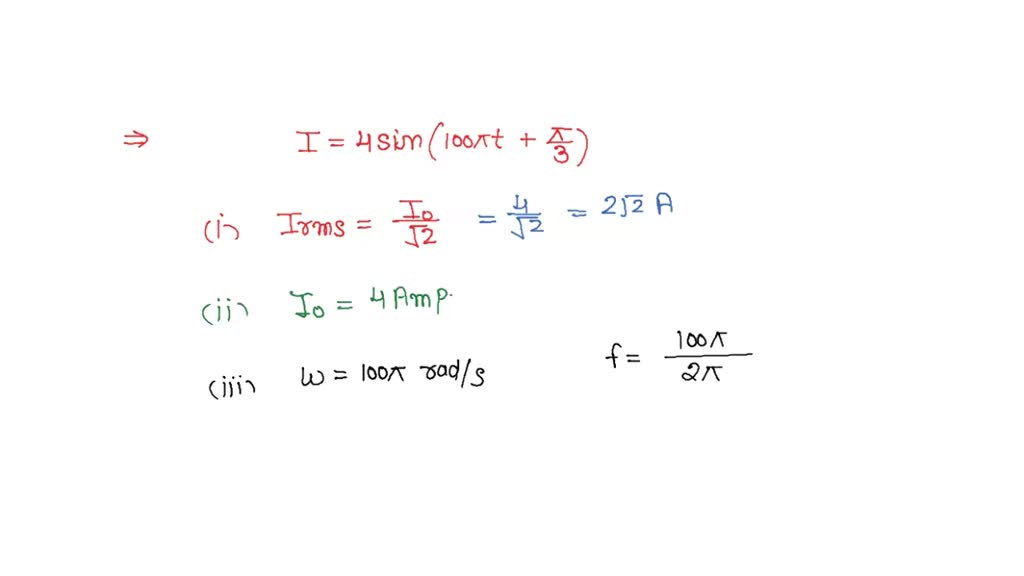 ⇒ I = 4sin(100πt + π/3)
(i) Irms = I₀/√2 = 4/√2 = 2√2 A
(ii) I₀ = 4Amp.
(iii) ω = 100π rad/s f = 100π/2π